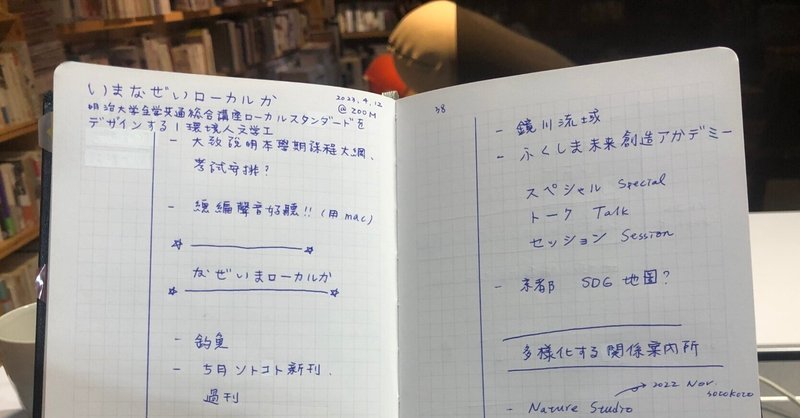 いまなぜいローカルか
2023.4.12
@ ZOOM
明治大学全学共通総合講座ローカルスタンダードを
デザインする｜環境人文学工
- 大致說明本學期課程大綱、
考試安排?
- 總編聲音好聽!! (用 mac)
なぜいまローカルか
- 釣魚
- 5月 ソトコト 新刊、
過刊
38
- 鏡川流域
- ふくしま未来創造アカデミー
スペシャル Special
トーク Talk
セッション Session
- 京都 SDG 地圖?
多様化する関係案内所
- Nature Studio → 2022 Nov.
sotokoto